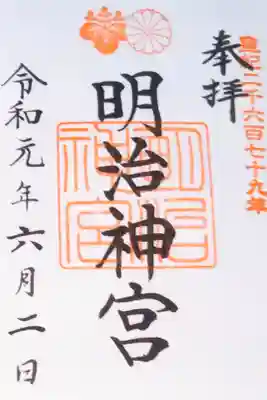 皇紀二千六百七十九年
奉拝
明治神宮
明治神宮
令和元年六月二日